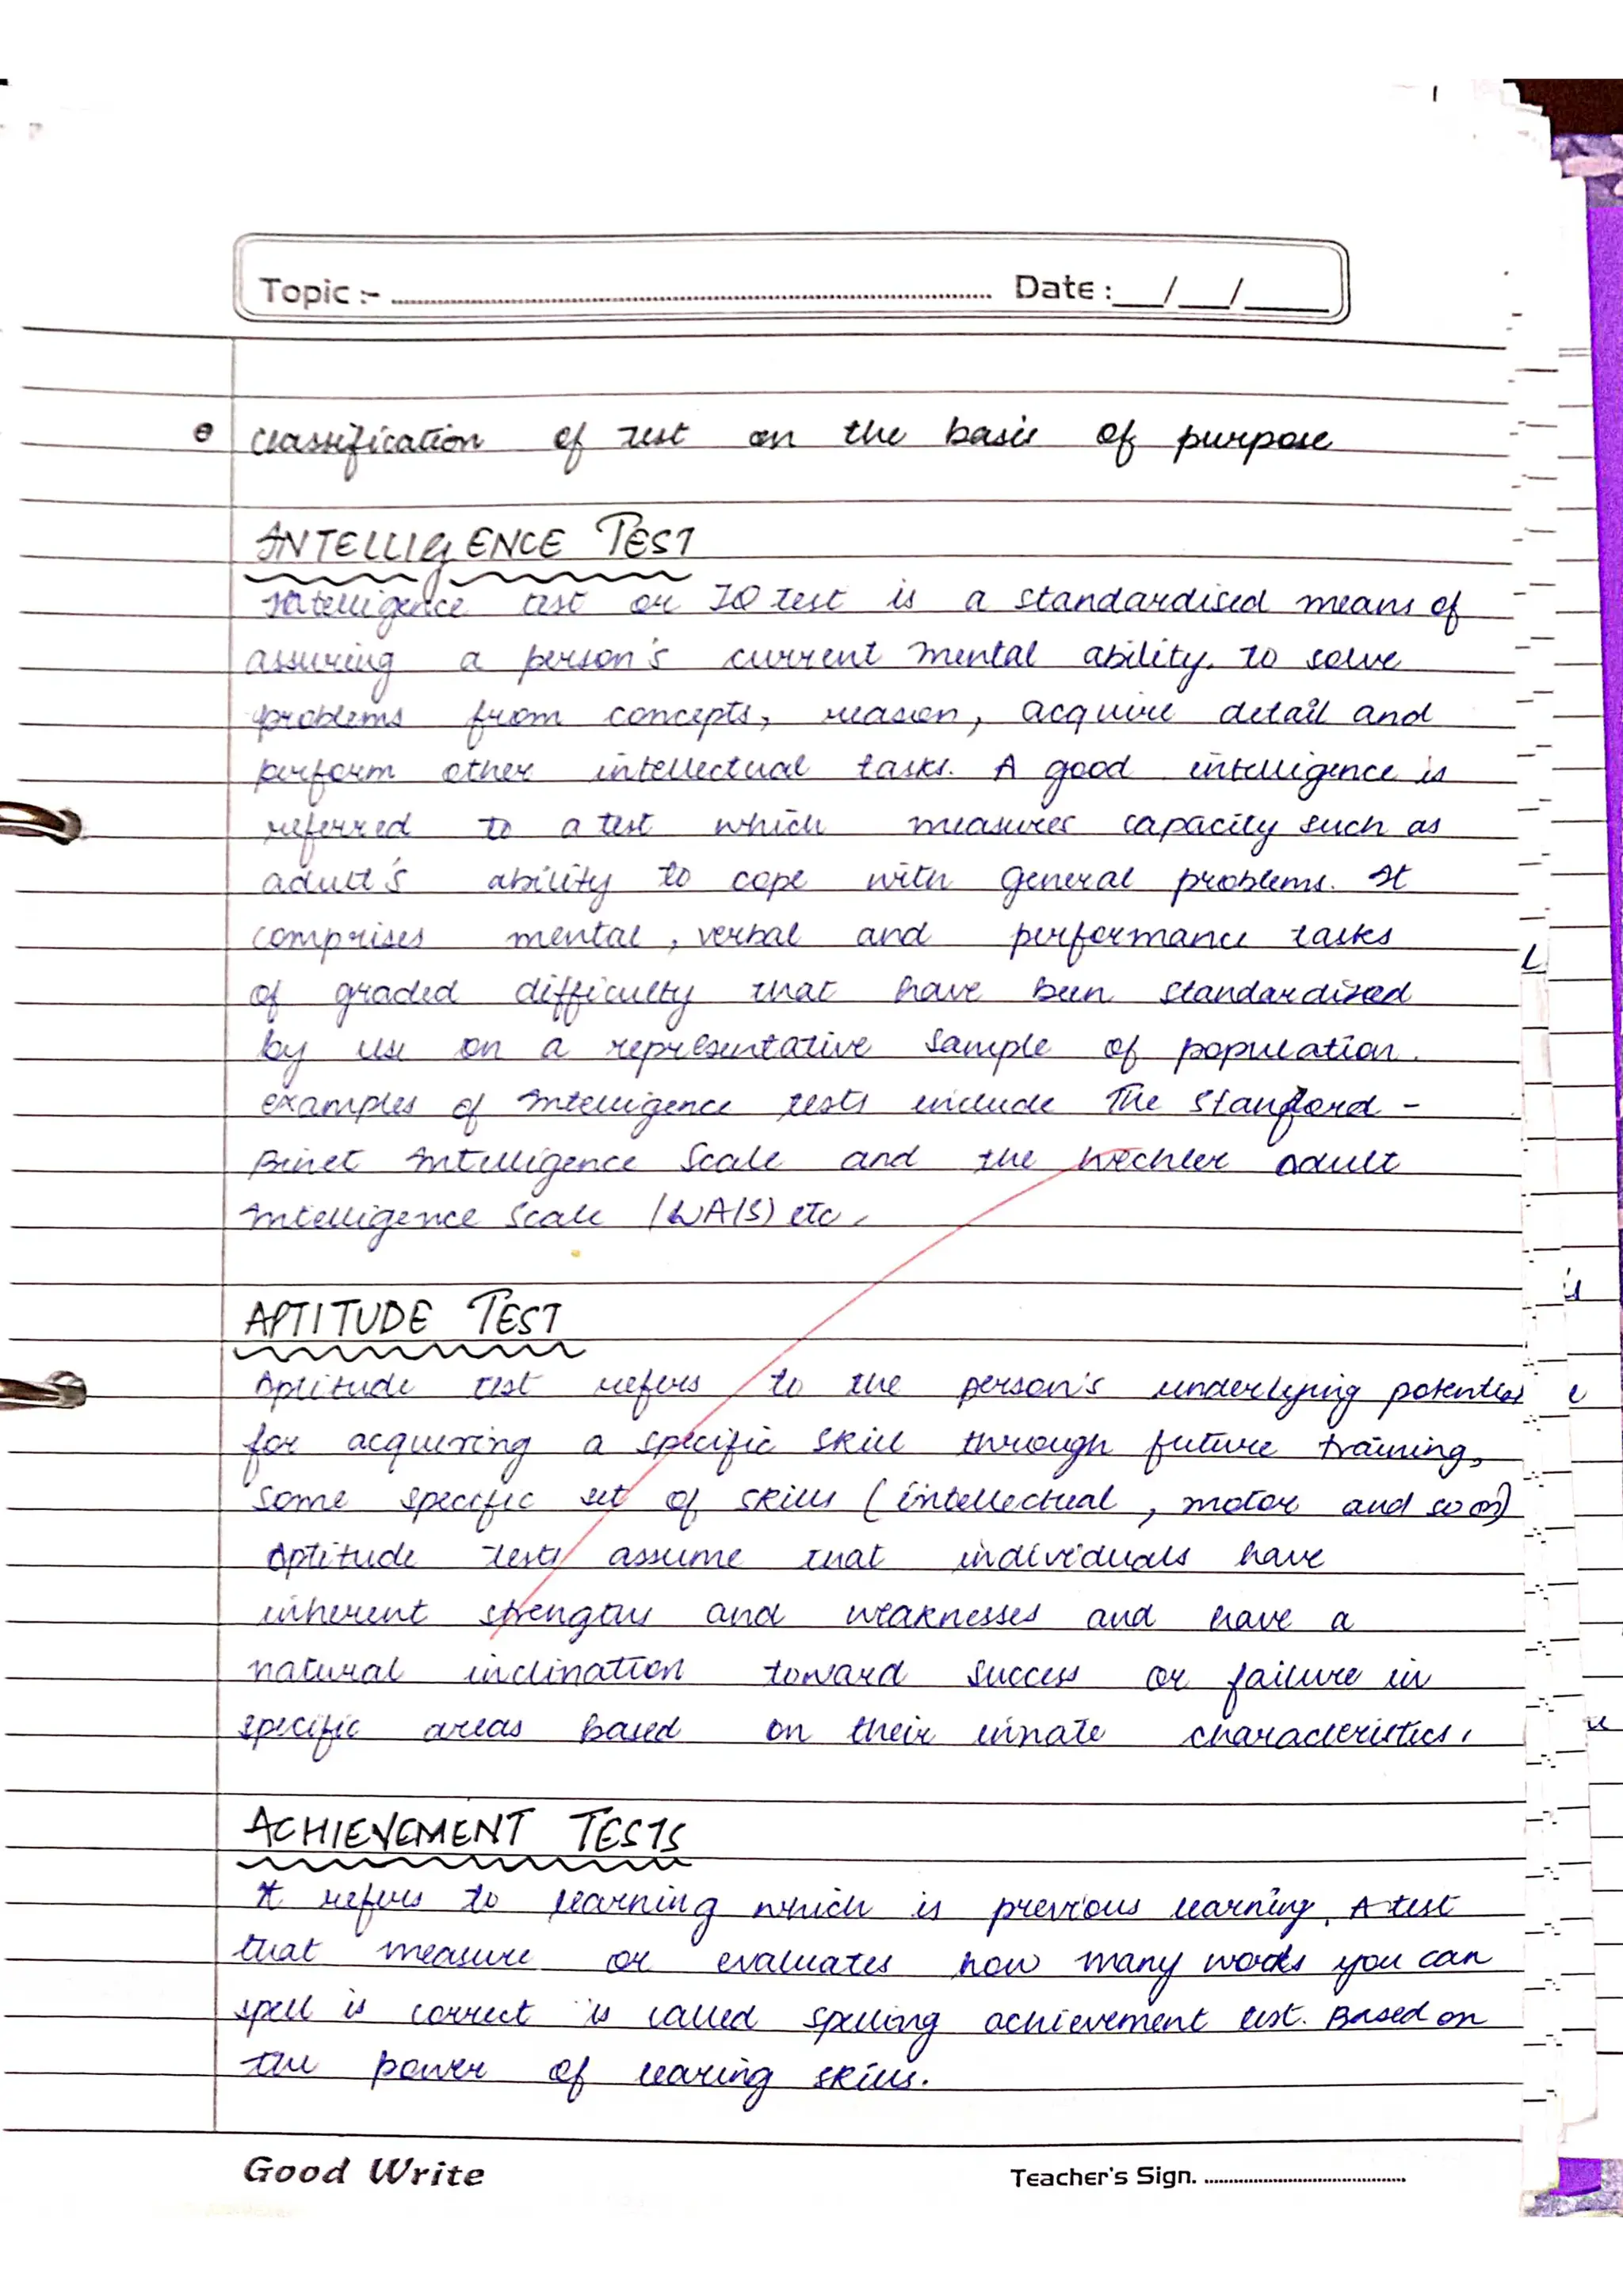 Topic :- Date : __/__/____
Classification of test on the basis of purpose
INTELLIGENCE TEST
Intelligence test or IQ test is a standardised means of
assuring a person's current mental ability. to solve
problems from concepts, reason, acquire detail and
perform other intellectual tasks. A good intelligence is
referred to a test which measures capacity such as
adult's ability to cope with general problems. It
comprises mental, verbal and performance tasks
of graded difficulty that have been standardized
by use on a representative sample of population.
examples of Intelligence tests include The Stanford -
Binet Intelligence Scale and the Wechler adult
Intelligence Scale (WAIS) etc.
APTITUDE TEST
Aptitude test refers to the person's underlying potential
for acquering a specific skill through future training,
some specific set of skills (intellectual, motor and so on)
Aptitude tests assume that individuals have
inherent strengths and weaknesses and have a
natural inclination toward success or failure in
specific areas based on their innate characteristics.
ACHIEVEMENT TESTS
It refers to learning which is previous learning. A test
that measure or evaluates how many words you can
spell is correct is called spelling achievement test. Based on
the power of learing skills.
Good Write Teacher's Sign.